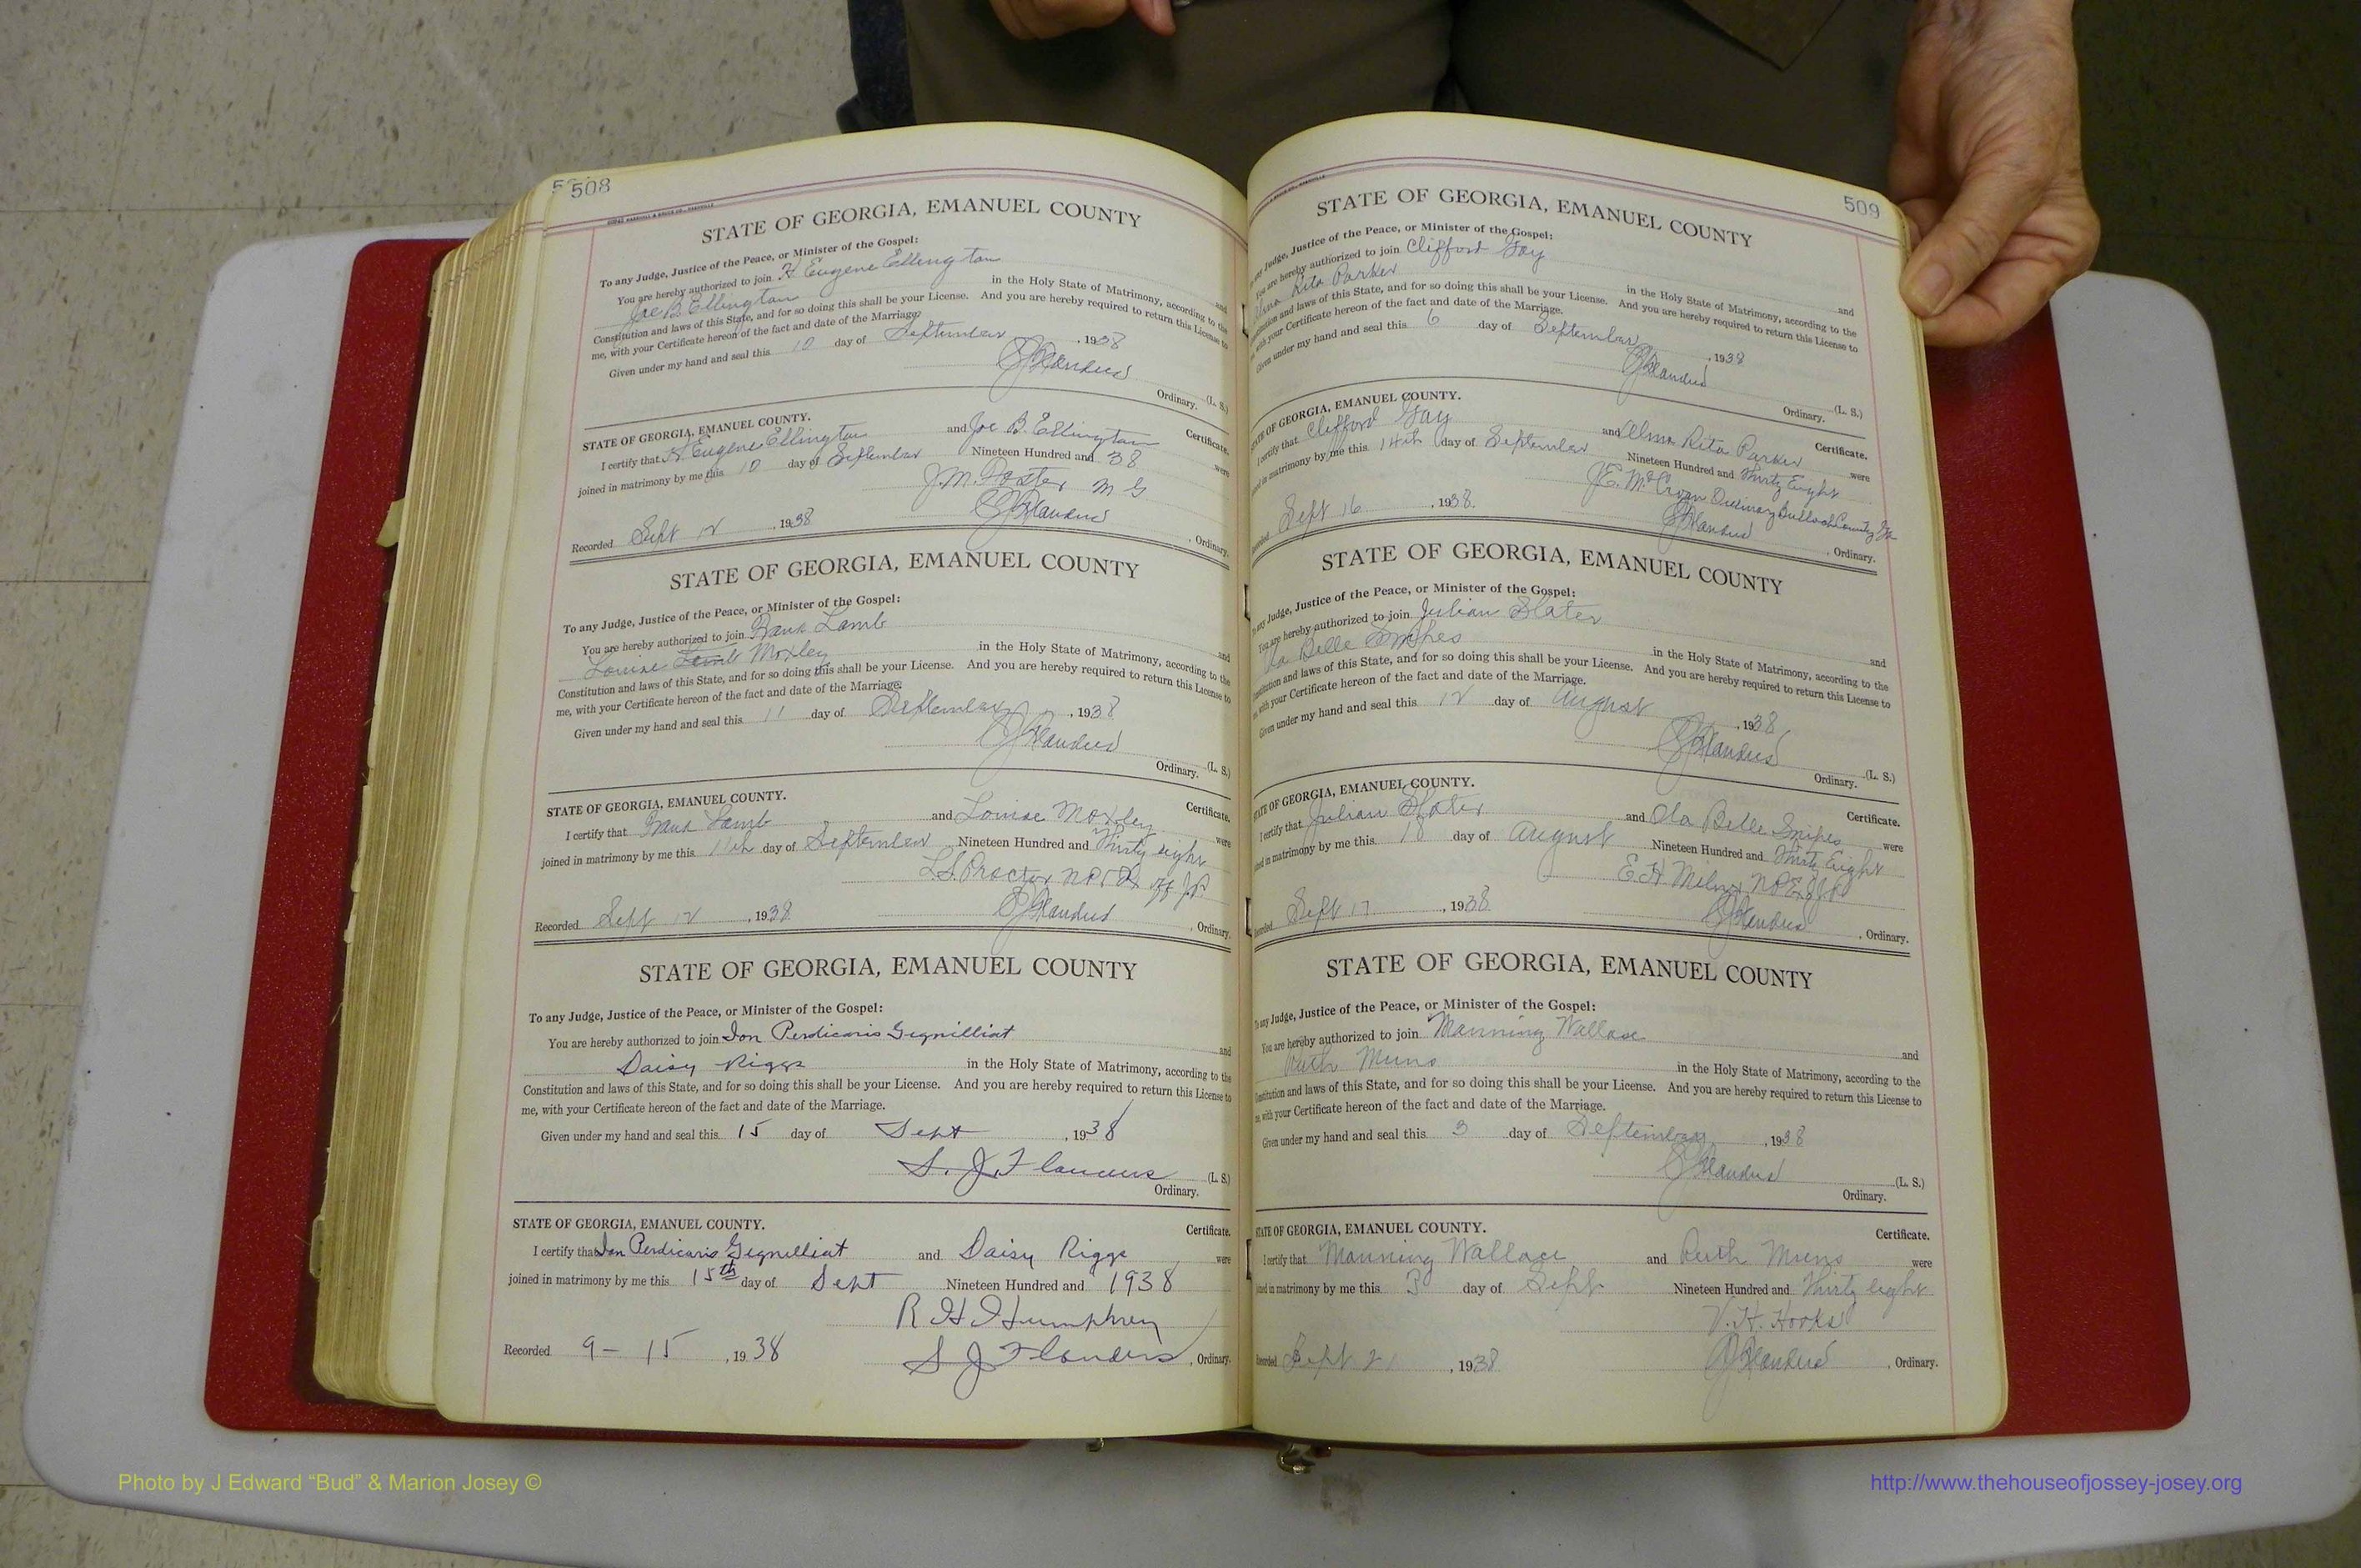 508
STATE OF GEORGIA, EMANUEL COUNTY
To any Judge, Justice of the Peace, or Minister of the Gospel:
You are hereby authorized to join H Eugene Ellington and
Joe B. Ellington in the Holy State of Matrimony, according to the
Constitution and laws of this State, and for so doing this shall be your License. And you are hereby required to return this License to
me, with your Certificate hereon of the fact and date of the Marriage.
Given under my hand and seal this 10 day of September, 1938
(L. S.)
Ordinary.
STATE OF GEORGIA, EMANUEL COUNTY. Certificate.
I certify that H. Eugene Ellington and Joe B. Ellington were
joined in matrimony by me this 10 day of September Nineteen Hundred and 38
J. M. Foster M G
Recorded Sept 12, 1938 , Ordinary.
STATE OF GEORGIA, EMANUEL COUNTY
To any Judge, Justice of the Peace, or Minister of the Gospel:
You are hereby authorized to join Frank Lamb and
Louise Lamb Moxley in the Holy State of Matrimony, according to the
Constitution and laws of this State, and for so doing this shall be your License. And you are hereby required to return this License to
me, with your Certificate hereon of the fact and date of the Marriage.
Given under my hand and seal this 11 day of September, 1938
(L. S.)
Ordinary.
STATE OF GEORGIA, EMANUEL COUNTY. Certificate.
I certify that Frank Lamb and Louise Moxley were
joined in matrimony by me this 11th day of September Nineteen Hundred and Thirty eight
L. S. Proctor
Recorded Sept 12, 1938 , Ordinary.
STATE OF GEORGIA, EMANUEL COUNTY
To any Judge, Justice of the Peace, or Minister of the Gospel:
You are hereby authorized to join Ion Perdicaris Gignilliat and
Daisy Riggs in the Holy State of Matrimony, according to the
Constitution and laws of this State, and for so doing this shall be your License. And you are hereby required to return this License to
me, with your Certificate hereon of the fact and date of the Marriage.
Given under my hand and seal this 15 day of Sept, 1938
S. J. Flanders (L. S.)
Ordinary.
STATE OF GEORGIA, EMANUEL COUNTY. Certificate.
I certify that Ion Perdicaris Gignilliat and Daisy Riggs were
joined in matrimony by me this 15th day of Sept Nineteen Hundred and 1938
R H Humphrey
Recorded 9-15, 1938 S J Flanders, Ordinary.
509
STATE OF GEORGIA, EMANUEL COUNTY
any Judge, Justice of the Peace, or Minister of the Gospel:
You are hereby authorized to join Clifford Gay and
Alma Rita Parker in the Holy State of Matrimony, according to the
Constitution and laws of this State, and for so doing this shall be your License. And you are hereby required to return this License to
me, with your Certificate hereon of the fact and date of the Marriage.
Given under my hand and seal this 6 day of September, 1938
(L. S.)
Ordinary.
STATE OF GEORGIA, EMANUEL COUNTY. Certificate.
I certify that Clifford Gay and Alma Rita Parker were
joined in matrimony by me this 14th day of September Nineteen Hundred and Thirty Eight
J. E. McCroan Ordinary Bulloch County Ga
Recorded Sept 16, 1938. , Ordinary.
STATE OF GEORGIA, EMANUEL COUNTY
To any Judge, Justice of the Peace, or Minister of the Gospel:
You are hereby authorized to join Julian Slater and
Ola Belle Snipes in the Holy State of Matrimony, according to the
Constitution and laws of this State, and for so doing this shall be your License. And you are hereby required to return this License to
me, with your Certificate hereon of the fact and date of the Marriage.
Given under my hand and seal this 12 day of August, 1938
(L. S.)
Ordinary.
STATE OF GEORGIA, EMANUEL COUNTY. Certificate.
I certify that Julian Slater and Ola Belle Snipes were
joined in matrimony by me this day of August Nineteen Hundred and Thirty Eight
E. H.
Recorded Sept 17, 1938 , Ordinary.
STATE OF GEORGIA, EMANUEL COUNTY
To any Judge, Justice of the Peace, or Minister of the Gospel:
You are hereby authorized to join Manning Wallace and
Ruth Muns in the Holy State of Matrimony, according to the
Constitution and laws of this State, and for so doing this shall be your License. And you are hereby required to return this License to
me, with your Certificate hereon of the fact and date of the Marriage.
Given under my hand and seal this 3 day of September, 1938
(L. S.)
Ordinary.
STATE OF GEORGIA, EMANUEL COUNTY. Certificate.
I certify that Manning Wallace and Ruth Muns were
joined in matrimony by me this 3 day of Sept Nineteen Hundred and Thirty eight
V. H. Hooks
Recorded Sept, 1938 , Ordinary.
Photo by J Edward “Bud” & Marion Josey ©
http://www.thehouseofjossey-josey.org